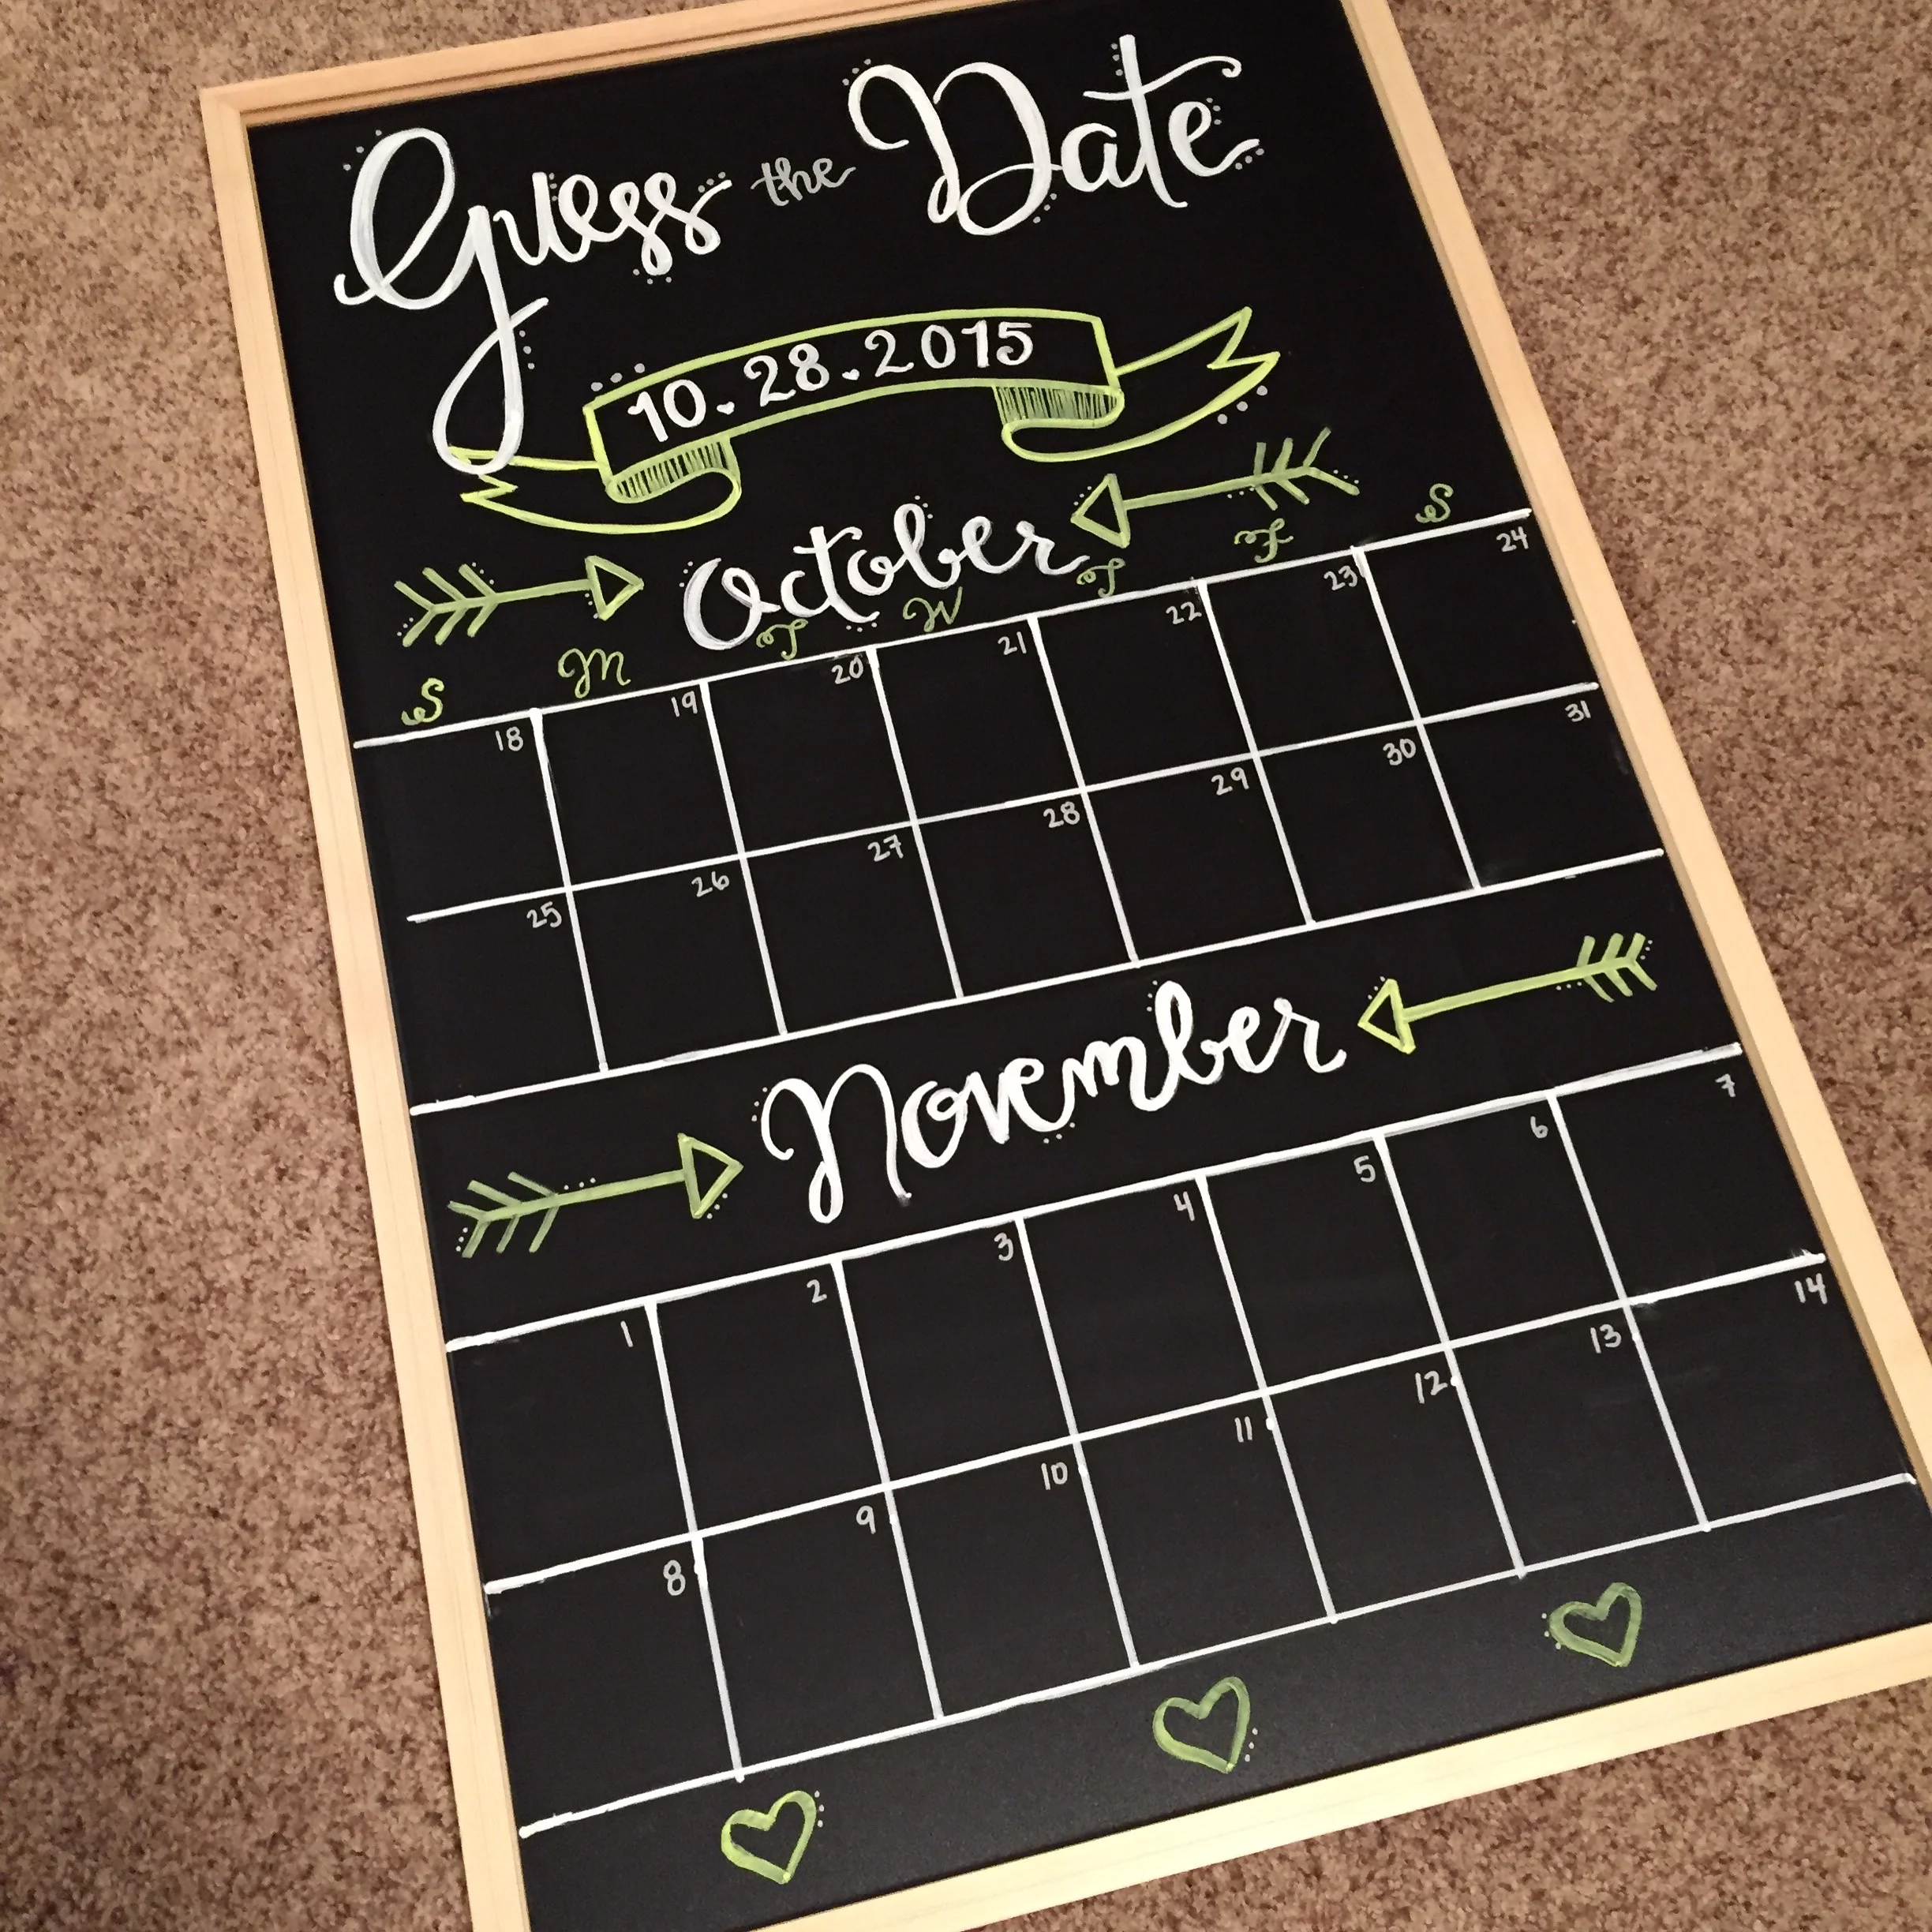 Guess the Date
10.28.2015
October
S M T W T F S
18 19 20 21 22 23 24
25 26 27 28 29 30 31
November
1 2 3 4 5 6 7
8 9 10 11 12 13 14